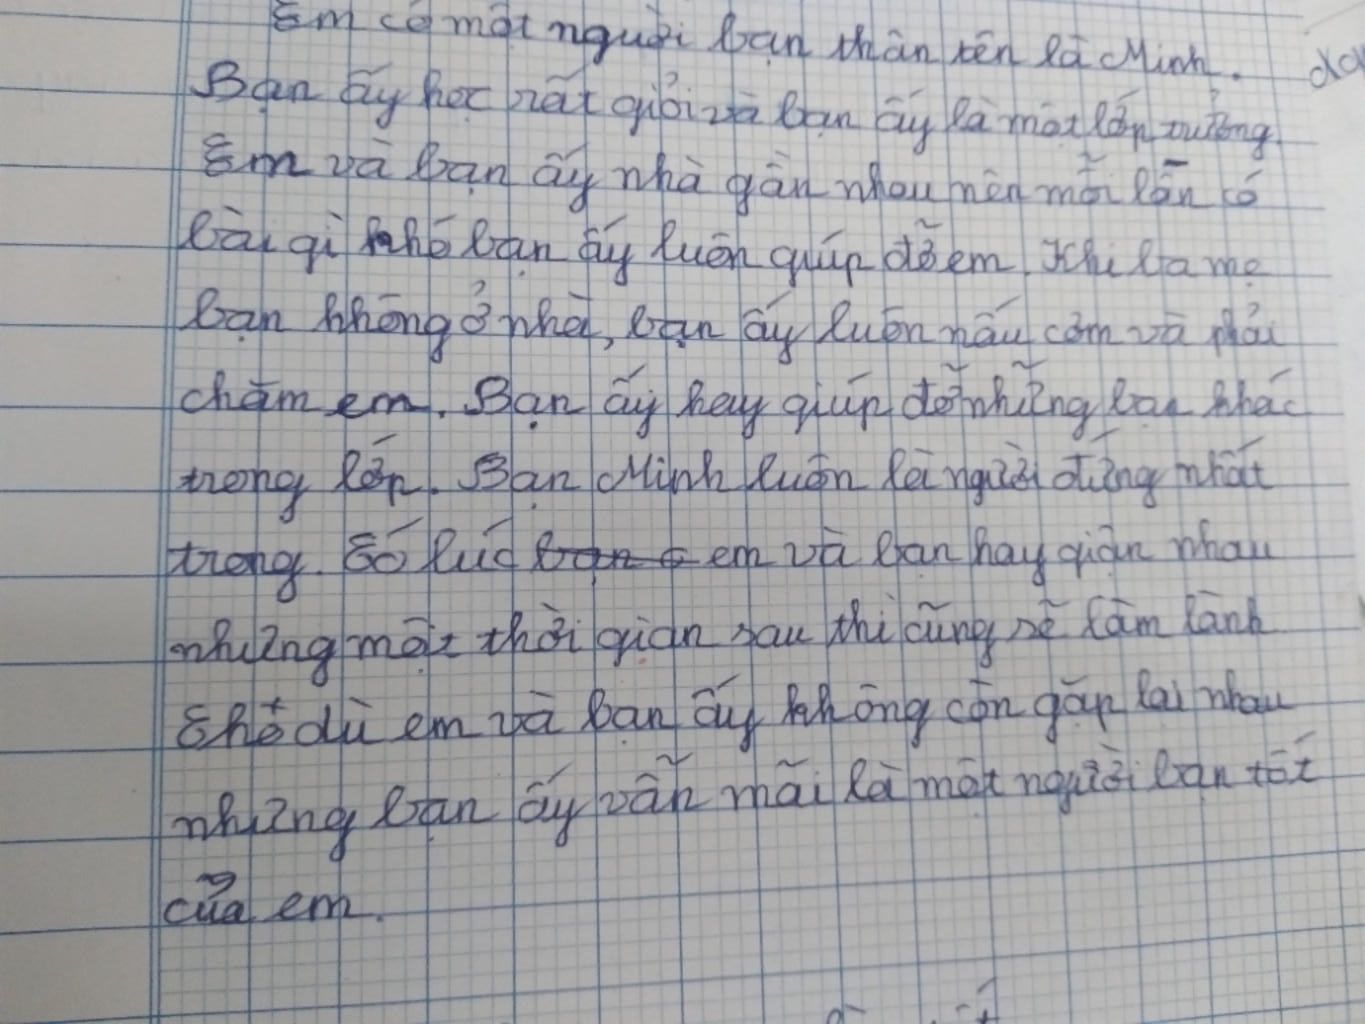 Em có một người bạn thân tên là Minh.
Bạn ấy học rất giỏi và bạn ấy là một lớp trưởng.
Em và bạn ấy nhà gần nhau nên mỗi lần có
bài gì khó bạn ấy luôn giúp đỡ em. Khi ba mẹ
bạn không ở nhà, bạn ấy luôn nấu cơm và phải
chăm em. Bạn ấy hay giúp đỡ những bạn khác
trong lớp. Bạn Minh luôn là người đứng nhất
trong. Có lúc em và bạn hay giận nhau
nhưng một thời gian sau thì cũng sẽ làm lành
Cho dù em và bạn ấy không còn gặp lại nhau
nhưng bạn ấy vẫn mãi là một người bạn tốt
của em.